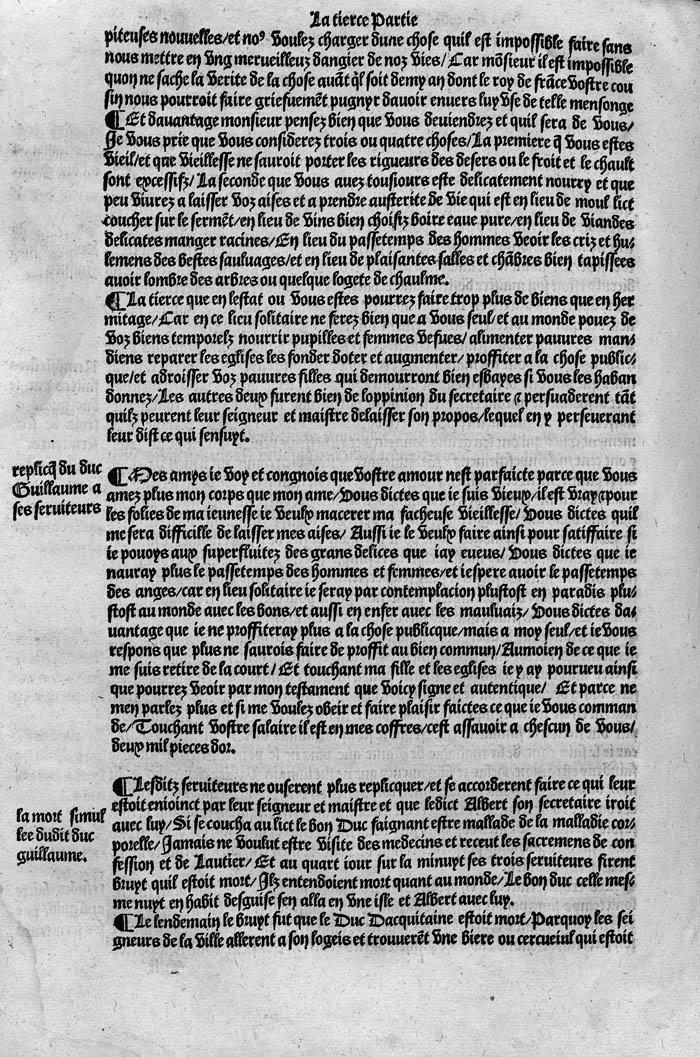 La tierce Partie
piteuses nouuelles/et noꝰ voulez charger dune chose quil est impossible faire sans
nous mettre en vng merueilleux dangier de noz vies/ Car mōsieur il est impossible
quon ne sache la verite de la chose auāt q̄l soit demy an dont le roy de frāce vostre cou
sin nous pourroit faire griefuemēt pugnyr dauoir enuers luy vse de telle mensonge
¶Et dauantage monsieur pensez bien que vous deuiendrez et quil sera de vous/
Je vous prie que vous considerez trois ou quatre choses/La premiere q̄ vous estes
vieil/et que vieillesse ne sauroit porter les rigueurs des desers ou le froit et le chault
sont excessifz/La seconde que vous auez tousiours este delicatement nourry et que
peu viurez a laisser voz aises et a prendre austerite de vie qui est en lieu de moul lict
coucher sur le sermēt/en lieu de vins bien choisiz boire eaue pure/en lieu de viandes
delicates manger racines/En lieu du passetemps des hommes veoir les criz et hu-
lemens des bestes sauluages/et en lieu de plaisantes salles et chābres bien tapissees
auoir lombre des arbres ou quelque logete de chaulme.
¶La tierce que en lestat ou vous estes pourrez faire trop plus de biens que en her
mitage/Car en ce lieu solitaire ne ferez bien que a vous seul/et au monde pouez de
voz biens temporelz nourrir pupilles et femmes vefues/ alimenter pauures man-
diens reparer les eglises les fonder doter et augmenter/ proffiter a la chose public-
que/et adroisser voz pauures filles qui demourront bien esbayes si vous les haban
donnez/Les autres deux furent bien de loppinion du secretaire ⁊ persuaderent tāt
quilz peurent leur seigneur et maistre delaisser son propos/lequel en y perseuerant
leur dist ce qui sensuyt.
replicq̄ du duc
Guillaume a
ses seruiteurs
¶Mes amys ie voy et congnois que vostre amour nest parfaicte parce que vous
amez plus mon corps que mon ame/vous dictes que ie suis vieux/il est vray⁊pour
les folies de ma ieunesse ie veulx macerer ma facheuse vieillesse/vous dictes quil
me sera difficille de laisser mes aises/ Aussi ie le veulx faire ainsi pour satiffaire si
ie pouoys aux superfluitez des grans delices que iay eueus/vous dictes que ie
nauray plus le passetemps des hommes et femmes/et iespere auoir le passetemps
des anges/car en lieu solitaire ie seray par contemplacion plustost en paradis plu-
stost au monde auec les bons/et aussi en enfer auec les mauluaiz/vous dictes da-
uantage que ie ne proffiteray plus a la chose publicque/mais a moy seul/et ie vous
respons que plus ne saurois faire de proffit au bien commun/Aumoien de ce que ie
me suis retire de la court/ Et touchant ma fille et les eglises ie y ay pourueu ainsi
que pourrez veoir par mon testament que voicy signe et autentique/ Et parce ne
men parlez plus et si me voulez obeir et faire plaisir faictes ce que ie vous comman
de/Touchant vostre salaire il est en mes coffres/cest assauoir a chescun de vous/
deux mil pieces dor.
la mort simul
lee dudit duc
guillaume.
¶Lesditz seruiteurs ne ouserent plus replicquer/et se accorderent faire ce qui leur
estoit enioinct par leur seigneur et maistre et que ledict Albert son secretaire iroit
auec luy/Si se coucha au lict le bon Duc faignant estre mallade de la malladie cor-
porelle/Jamais ne voulut estre visite des medecins et receut les sacremens de con
fession et de Lautier/Et au quart iour sur la minuyt ses trois seruiteurs firent
bruyt quil estoit mort/Ilz entendoient mort quant au monde/Le bon duc celle mes-
me nuyt en habit desguise sen alla en vne isle et Albert auec luy.
¶Le lendemain le bruyt fut que le Duc Dacquitaine estoit mort/Parquoy les sei
gneurs de la ville allerent a son logeis et trouuerēt vne biere ou cercueiul qui estoit